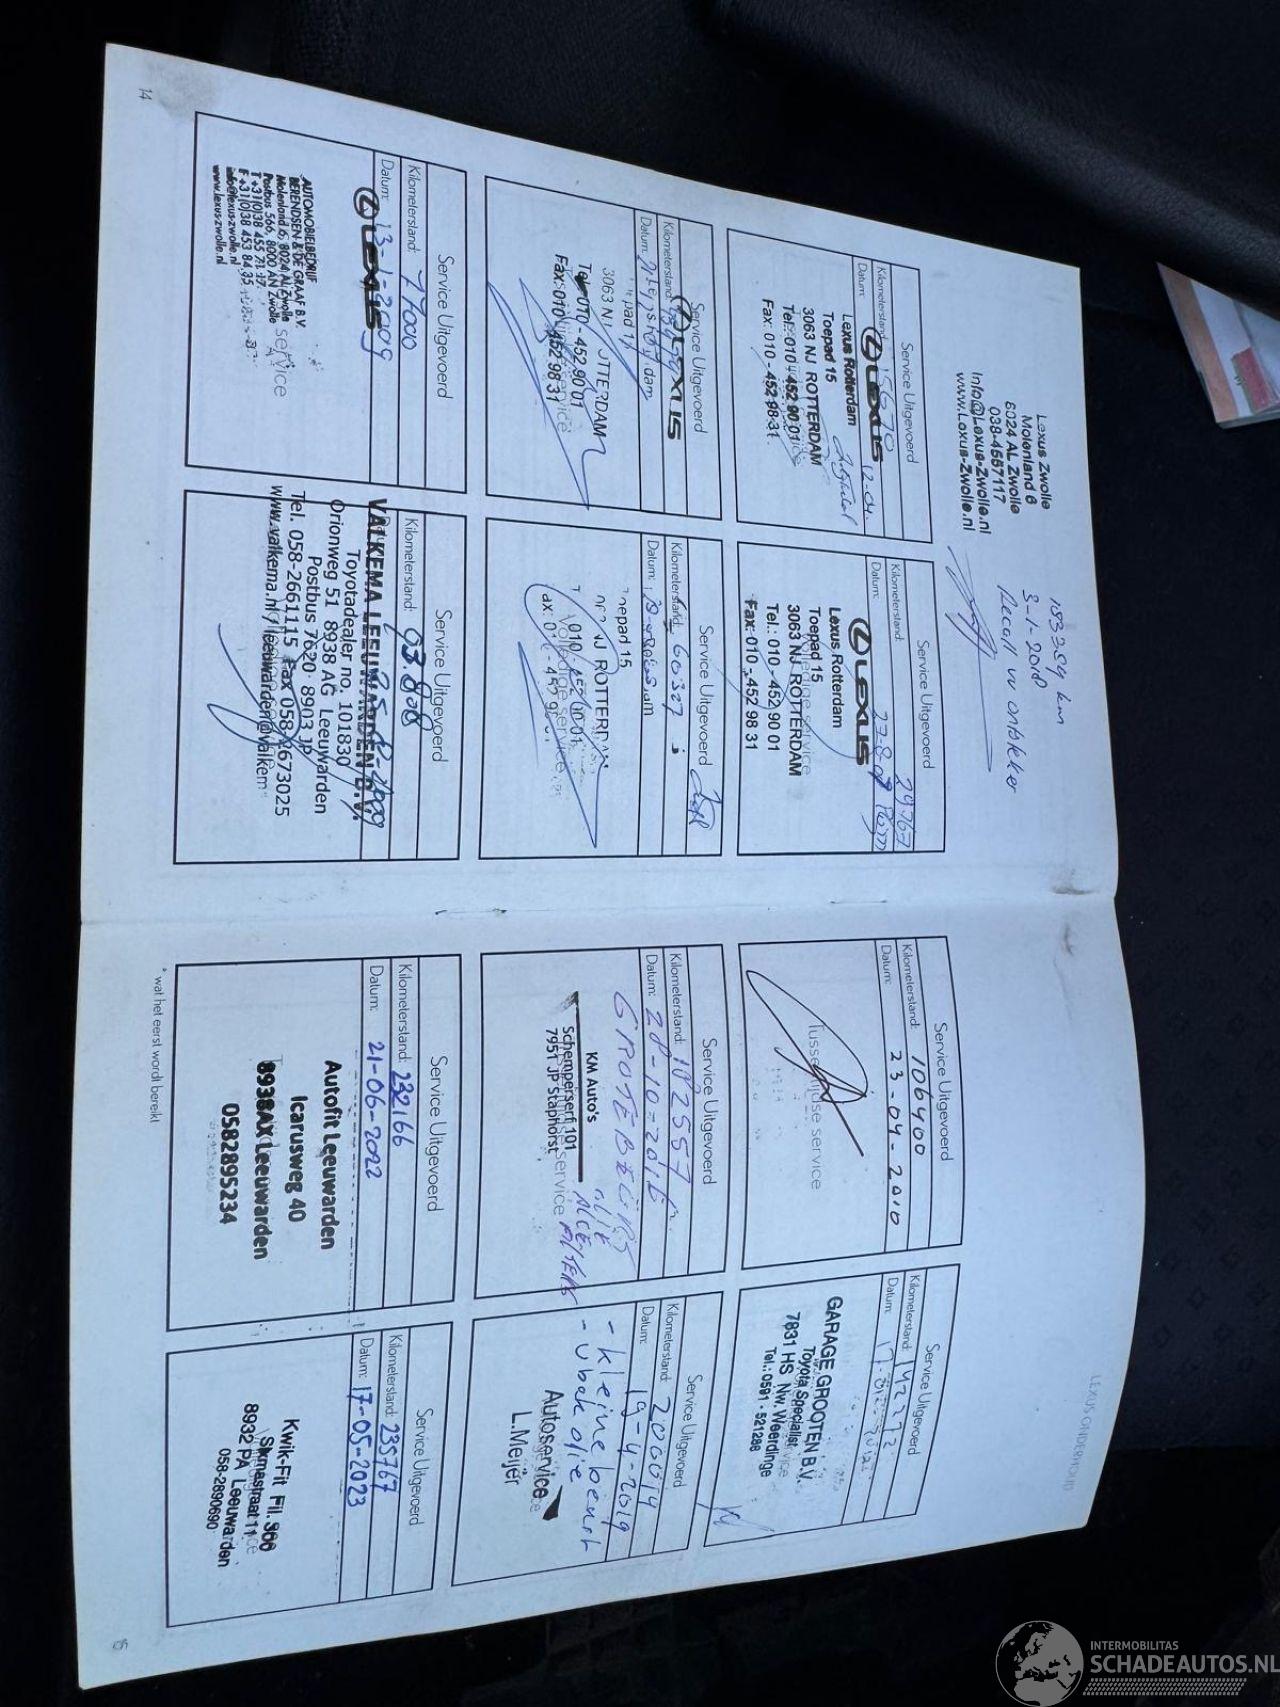 Lexus Zwolle
Molenland 6
8024 AL Zwolle
038-4557117
Info@Lexus-Zwolle.nl
www.Lexus-Zwolle.nl
183 359 km
3-1-2018
Recall vv
Service Uitgevoerd
Kilometerstand: 15670
Datum: 12-04
LEXUS
Lexus Rotterdam
Toepad 15
3063 NJ ROTTERDAM
Tel.: 010 - 452 90 01
Fax: 010 - 452 98 31
Service Uitgevoerd
Kilometerstand: 29767
Datum: 27-8-07
LEXUS
Lexus Rotterdam
Toepad 15
3063 NJ ROTTERDAM
Tel.: 010 - 452 90 01
Fax: 010 - 452 98 31
Service Uitgevoerd
Kilometerstand:
Datum:
LEXUS
Tel. 010 - 452 90 01
Fax: 010 - 452 98 31
Service Uitgevoerd
Kilometerstand: 60327
Datum:
Service Uitgevoerd
Kilometerstand: 77000
Datum: 13-1-2009
LEXUS
AUTOMOBIELBEDRIJF
BERENDSEN & DE GRAAF B.V.
Molenland 6, 8024 AL Zwolle
Postbus 566, 8000 AN Zwolle
T +31(0)38 455 71 17
F +31(0)38 453 84 35
info@lexus-zwolle.nl
www.lexus-zwolle.nl
Service Uitgevoerd
Kilometerstand: 93.808
VALKEMA LEEUWARDEN B.V.
Toyotadealer no. 101830
Orionweg 51 8938 AG Leeuwarden
Postbus 7620 8903 JP
Tel. 058-2661115 Fax 058-2673025
www.valkema.nl / leeuwarden@valkema
14
LEXUS ONDERHOUD
Service Uitgevoerd
Kilometerstand: 106400
Datum: 23-04-2010
Tussentijdse service
Service Uitgevoerd
Kilometerstand: 142272
Datum:
GARAGE GROOTEN B.V.
Toyota Specialist
7831 HS Nw. Weerdinge
Tel.: 0591 - 521288
Service Uitgevoerd
Kilometerstand: 182557
Datum: 28-10-2016
GROTE BEURT
KM Auto's
Schemperserf 101
7951 JP Staphorst
OLIE
FILTERS
Service Uitgevoerd
Kilometerstand: 206014
Datum: 19-4-2019
- kleine beurt
- vbak olie
Autoservice
L.Meijer
Service Uitgevoerd
Kilometerstand: 232166
Datum: 21-06-2022
Autofit Leeuwarden
Icarusweg 40
8938AX Leeuwarden
0582895234
Service Uitgevoerd
Kilometerstand: 235767
Datum: 17-05-2023
Kwik-Fit Fil. 366
8932 PA Leeuwarden
058-2890690
* wat het eerst wordt bereikt
15
INTERMOBILITAS
SCHADEAUTOS.NL